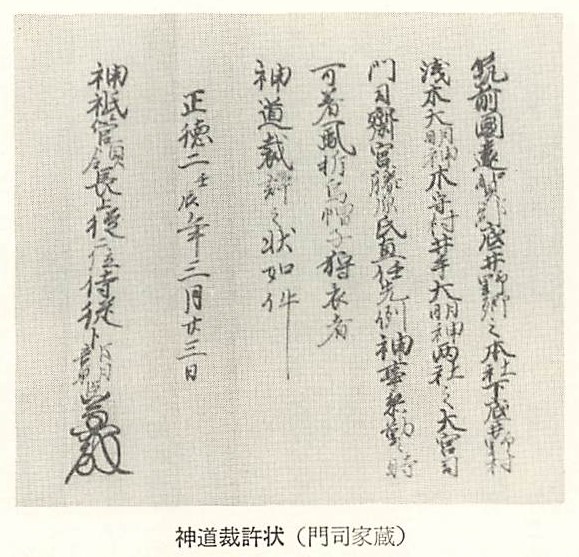 筑前國遠賀郡底井野郷之本社下底井野村
浅木大明神木守村井手大明神両社之大宮司
門司齋宮藤原氏直任先例神事参勤之時
可着風折烏帽子狩衣者
神道裁許之状如件
正徳二壬辰年三月廿三日
神祇管領長上従二位侍従卜部朝臣
神道裁許状（門司家蔵）